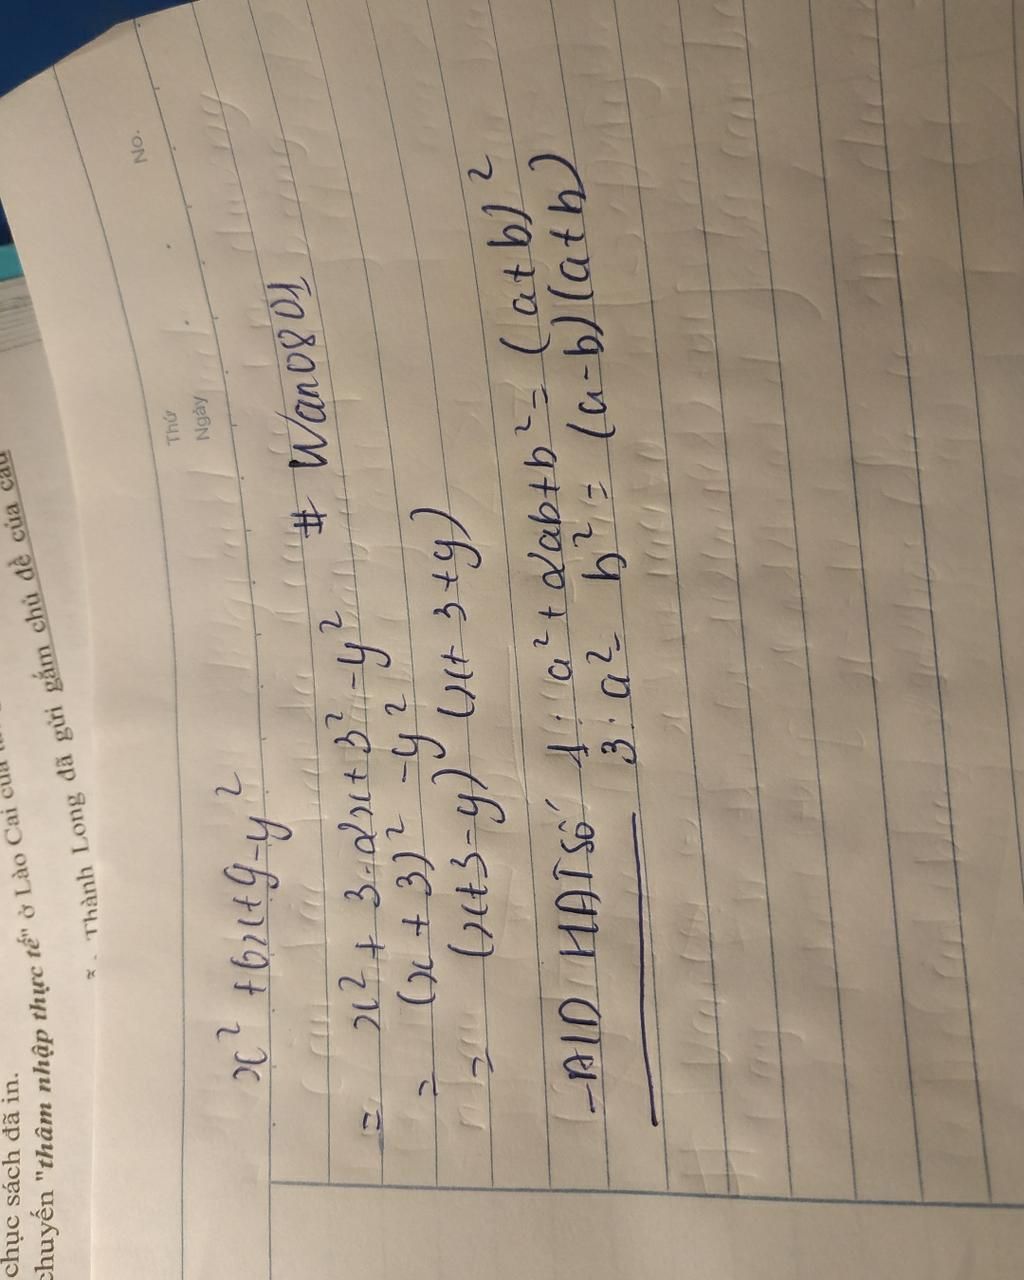 chục sách đã in.
chuyến "thâm nhập thực tế" ở Lào Cai của
Thành Long đã gửi gắm chủ đề của câu
No.
Thứ
Ngày
x² + 6x + 9 - y²
# Wan0801
= x² + 3·2x + 3² - y²
= (x + 3)² - y²
= (x+3-y) (x+ 3+y)
-AD HĐT số 1: a² + 2ab + b² = (a+b)²
3: a² - b² = (a-b)(a+b)